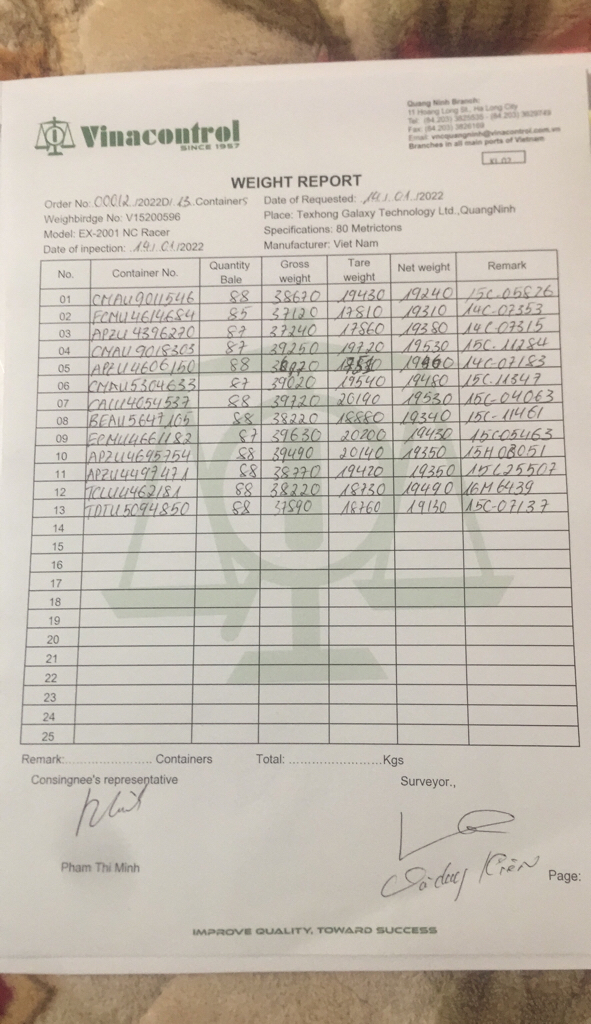 Vinacontrol
SINCE 1957
Quang Ninh Branch:
11 Hoang Long St., Ha Long City
Branches in all main ports of Vietnam
WEIGHT REPORT
Order No: 00012 /2022D/ 13 Containers Date of Requested: 14/ 01 /2022
Weighbirdge No: V15200596 Place: Texhong Galaxy Technology Ltd.,QuangNinh
Model: EX-2001 NC Racer Specifications: 80 Metrictons
Date of inpection: 14/ 01 /2022 Manufacturer: Viet Nam
No. Container No. Quantity Bale Gross weight Tare weight Net weight Remark
01 CMAU9011546 88 38670 19430 19240 15C-05826
02 FCMU4614684 85 37120 17810 19310 14C-07353
03 APZU4396270 87 37240 17860 19380 14C-07315
04 CMAU9018303 87 39250 19720 19530 15C-11284
05 APZU4606150 88 14C-07183
06 CMAU5304633 87 39020 19540 19480 15C-11347
07 CAIU4054537 88 39720 20190 19530 15C-04063
08 BEAU5647105 88 38220 18880 19340 15C-11461
09 87 39630 20200 19430 15C05463
10 APZU4695754 88 39490 20140 19350 15H08051
11 APZU4497471 88 38770 19420 19350 15C25507
12 88 38220 18730 19490 16M6439
13 TDTU5094850 88 37890 18760 19130 15C-07137
14
15
16
17
18
19
20
21
22
23
24
25
Remark:........................ Containers Total: ........................Kgs
Consingnee's representative Surveyor.,
Pham Thi Minh
Page:
IMPROVE QUALITY, TOWARD SUCCESS